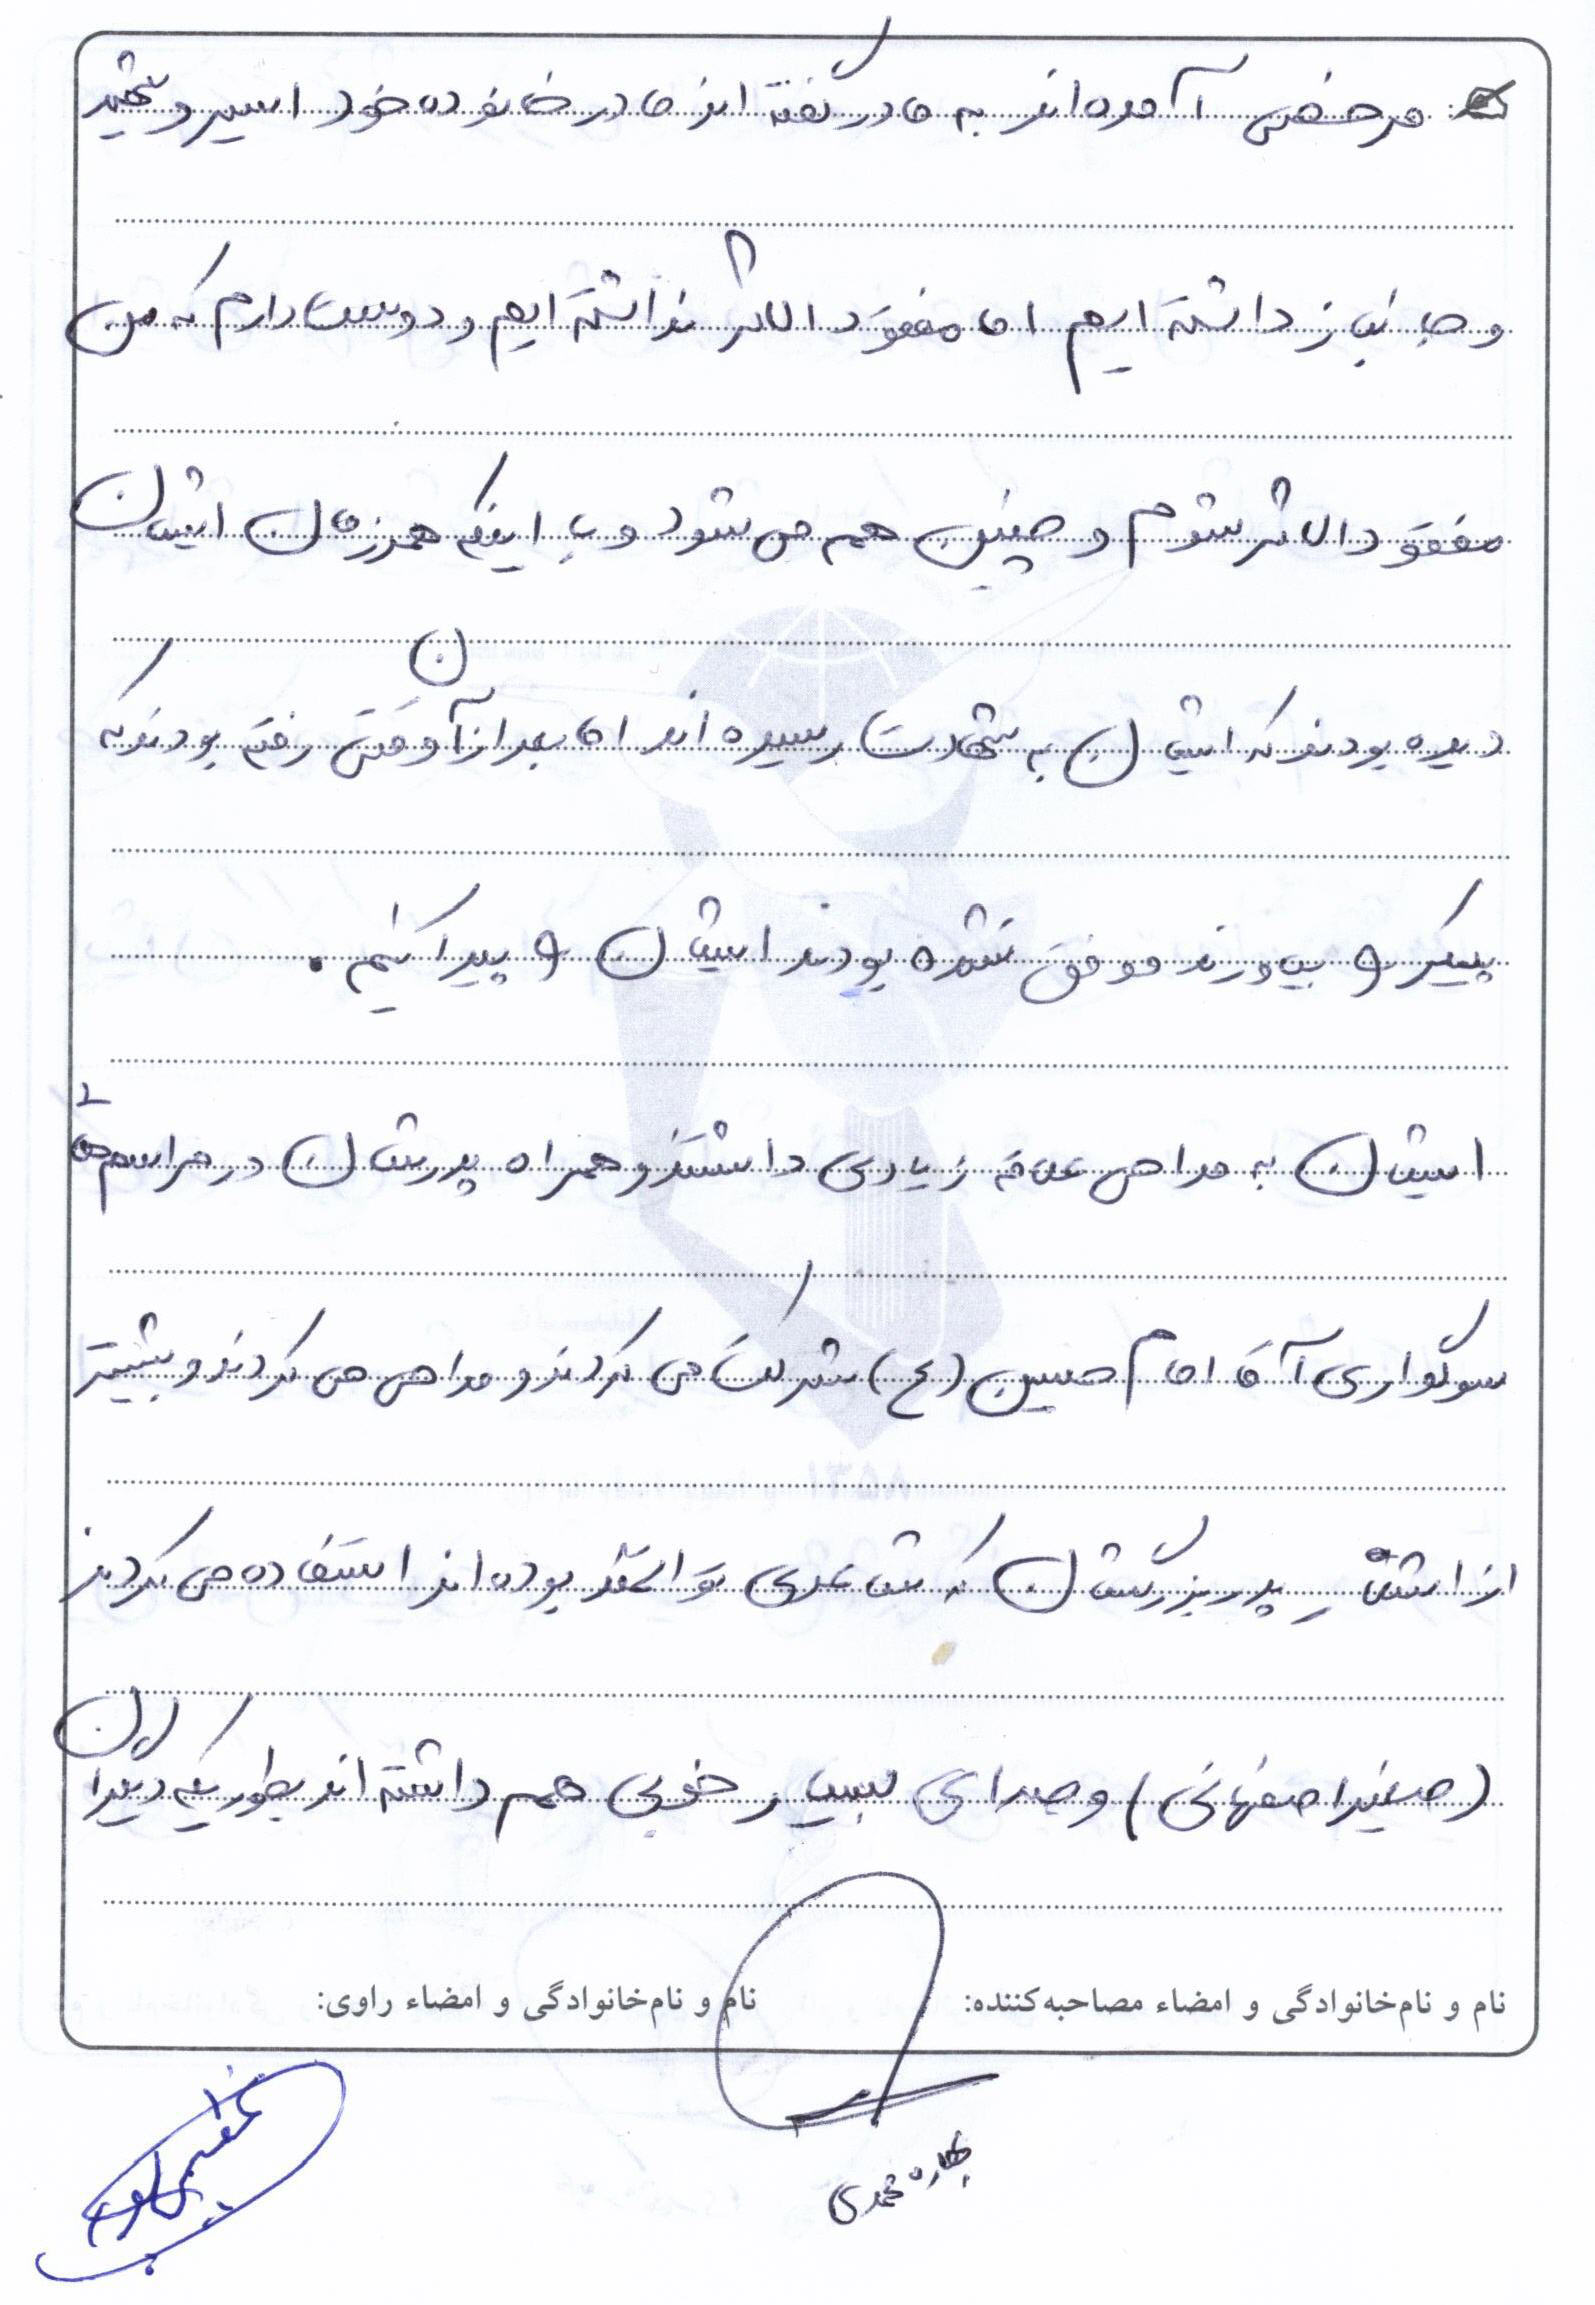 مرخصی آمده‌اند به مادر گفته اند مادر خانوده خود اسیر و شهید
و جانباز داشته ایم اما مفقودالاثر نداشته ایم و دوست دارم که من
مفقودالاثر شوم و چنین هم می شود و با اینکه همرزمان ایشان
دیده بودند که ایشان به شهادت رسیده اند اما بعد از آن وقتی رفته بودند که
پیکر و بیاورند موفق نشده بودند ایشان و پیدا کنیم.
ایشان به مداحی علاقه زیادی داشتند و همراه پدرشان در مراسم های
سوگواری آقا امام حسین (ع) شرکت می کردند و مداحی می کردند و بیشتر
از اشعار پدر بزرگشان که شاعری توانمند بوده اند استفاده می کردند
(صغیر اصفهانی) و صدای بسیار خوبی هم داشته اند بطوریکه دیگران
نام و نام‌خانوادگی و امضاء مصاحبه‌کننده: نام و نام‌خانوادگی و امضاء راوی:
بهاره محمدی